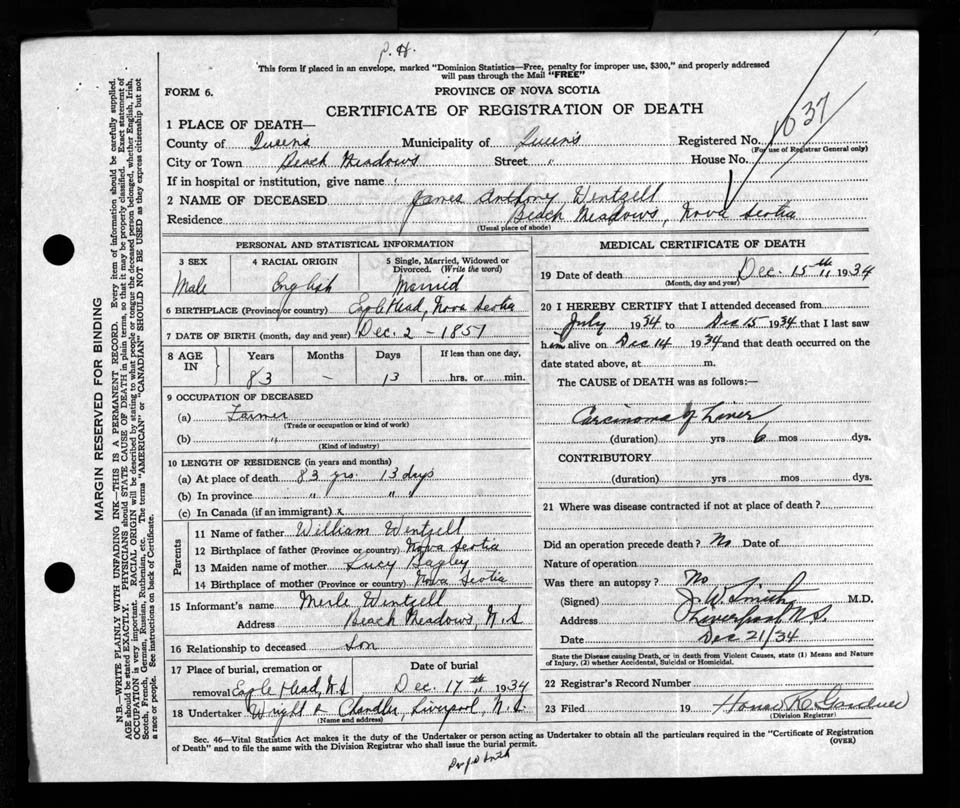 P. H.
This form if placed in an envelope, marked "Dominion Statistics—Free, penalty for improper use, $300," and properly addressed
will pass through the Mail "FREE"
FORM 6.
PROVINCE OF NOVA SCOTIA
CERTIFICATE OF REGISTRATION OF DEATH
1 PLACE OF DEATH—
County of Queens Municipality of Queens Registered No. 1037
(For use of Registrar General only)
City or Town Beach Meadows Street " House No.
If in hospital or institution, give name
2 NAME OF DECEASED James Anthony Wentzell
Residence Beach Meadows, Nova Scotia
(Usual place of abode)
PERSONAL AND STATISTICAL INFORMATION
3 SEX
Male
4 RACIAL ORIGIN
English
5 Single, Married, Widowed or
Divorced. (Write the word)
Married
6 BIRTHPLACE (Province or country) Eagle Head, Nova Scotia
7 DATE OF BIRTH (month, day and year) Dec. 2 - 1851
8 AGE IN
Years Months Days If less than one day,
83 - 13 hrs. or min.
9 OCCUPATION OF DECEASED
(a) Farmer
(Trade or occupation or kind of work)
(b) "
(Kind of industry)
10 LENGTH OF RESIDENCE (in years and months)
(a) At place of death 83 yrs. 13 days
(b) In province " "
(c) In Canada (if an immigrant) x
Parents
11 Name of father William Wentzell
12 Birthplace of father (Province or country) Nova Scotia
13 Maiden name of mother Lucy
14 Birthplace of mother (Province or country) Nova Scotia
15 Informant's name Merle Wentzell
Address Beach Meadows, N.S
16 Relationship to deceased Son
17 Place of burial, cremation or
removal Eagle Head, N.S
Date of burial
Dec. 17th " 1934
18 Undertaker Wright & Chandler, Liverpool, N.S.
(Name and address)
MEDICAL CERTIFICATE OF DEATH
19 Date of death Dec. 15th " 1934
(Month, day and year)
20 I HEREBY CERTIFY that I attended deceased from
July 1934 to Dec 15 1934 that I last saw
him alive on Dec 14 1934 and that death occurred on the
date stated above, at m.
The CAUSE of DEATH was as follows:—
Carcinoma of Liver
(duration) yrs 6 mos dys.
CONTRIBUTORY
(duration) yrs mos dys.
21 Where was disease contracted if not at place of death?
Did an operation precede death? No Date of
Nature of operation
Was there an autopsy? No
(Signed) J. W. Smith M.D.
Address Liverpool N.S.
Date Dec 21/34
State the Disease causing Death, or in death from Violent Causes, state (1) Means and Nature
of Injury, (2) whether Accidental, Suicidal or Homicidal.
22 Registrar's Record Number
23 Filed 19 R. Gardner
(Division Registrar)
Sec. 46—Vital Statistics Act makes it the duty of the Undertaker or person acting as Undertaker to obtain all the particulars required in the "Certificate of Registration
of Death" and to file the same with the Division Registrar who shall issue the burial permit.
(OVER)
MARGIN RESERVED FOR BINDING
N.B.—WRITE PLAINLY WITH UNFADING INK—THIS IS A PERMANENT RECORD. Every item of information should be carefully supplied.
AGE should be stated EXACTLY. PHYSICIANS should STATE CAUSE OF DEATH in plain terms, so that it may be properly classified. Exact statement of
OCCUPATION is very important. RACIAL ORIGIN will be described by stating to what people or tongue the deceased person belonged, whether English, Irish,
Scotch, French, German, Russian, Ruthenian, etc. The terms "AMERICAN" or "CANADIAN" SHOULD NOT BE USED as they express citizenship but not
a race or people. See instructions on back of Certificate.